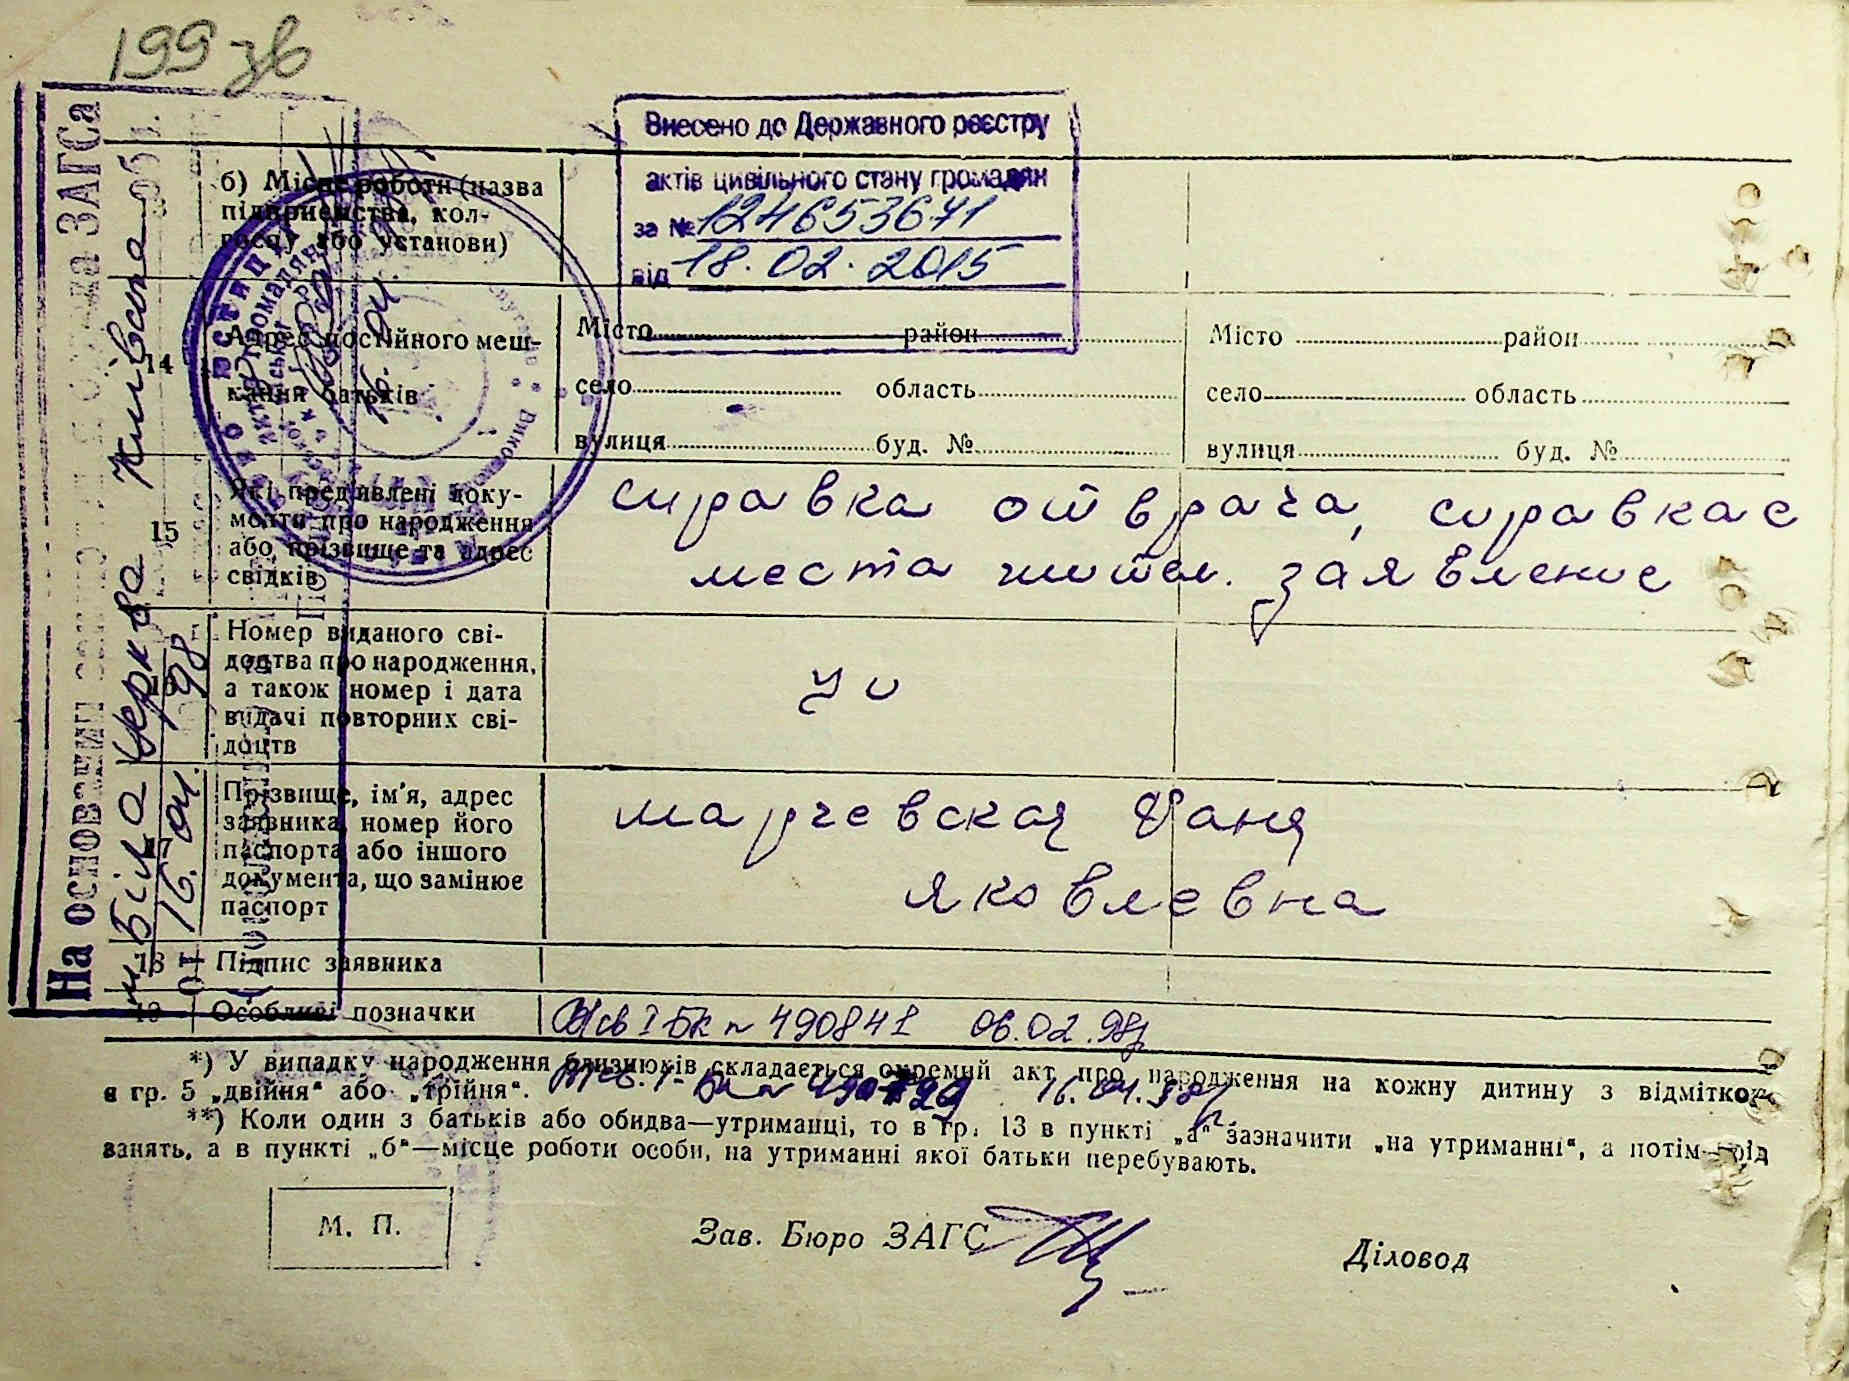 199 зв
Внесено до Державного реєстру
актів цивільного стану громадян
за № 124653671
від 18.02.2015
На основании записи отдела ЗАГСа
м. Біла Церква Київська обл.
от 16.04. 98
б) Місце роботи (назва
підприємства, кол-
госпу або установи)
14
Адрес постійного меш-
кання батьків
Місто район
село область
вулиця буд. №
Місто район
село область
вулиця буд. №
15
Які пред'явлені доку-
менти про народження
або прізвище та адрес
свідків
справка от врача, справка с
места жител. заявление
Номер виданого сві-
доцтва про народження,
а також номер і дата
видачі повторних сві-
доцтв
Прізвище, ім'я, адрес
заявника, номер його
паспорта або іншого
документа, що замінює
паспорт
Марчевская Фаня
Яковлевна
18 Підпис заявника
19 Особливі позначки
І БК № 490841 06.02.98р
*) У випадку народження близнюків складається окремий акт про народження на кожну дитину з відміткою
в гр. 5 „двійня“ або „трійня“.
16.04.98р
**) Коли один з батьків або обидва—утриманці, то в гр. 13 в пункті „а“ зазначити „на утриманні“, а потім—рід
занять, а в пункті „б“—місце роботи особи, на утриманні якої батьки перебувають.
М. П.
Зав. Бюро ЗАГС
Діловод